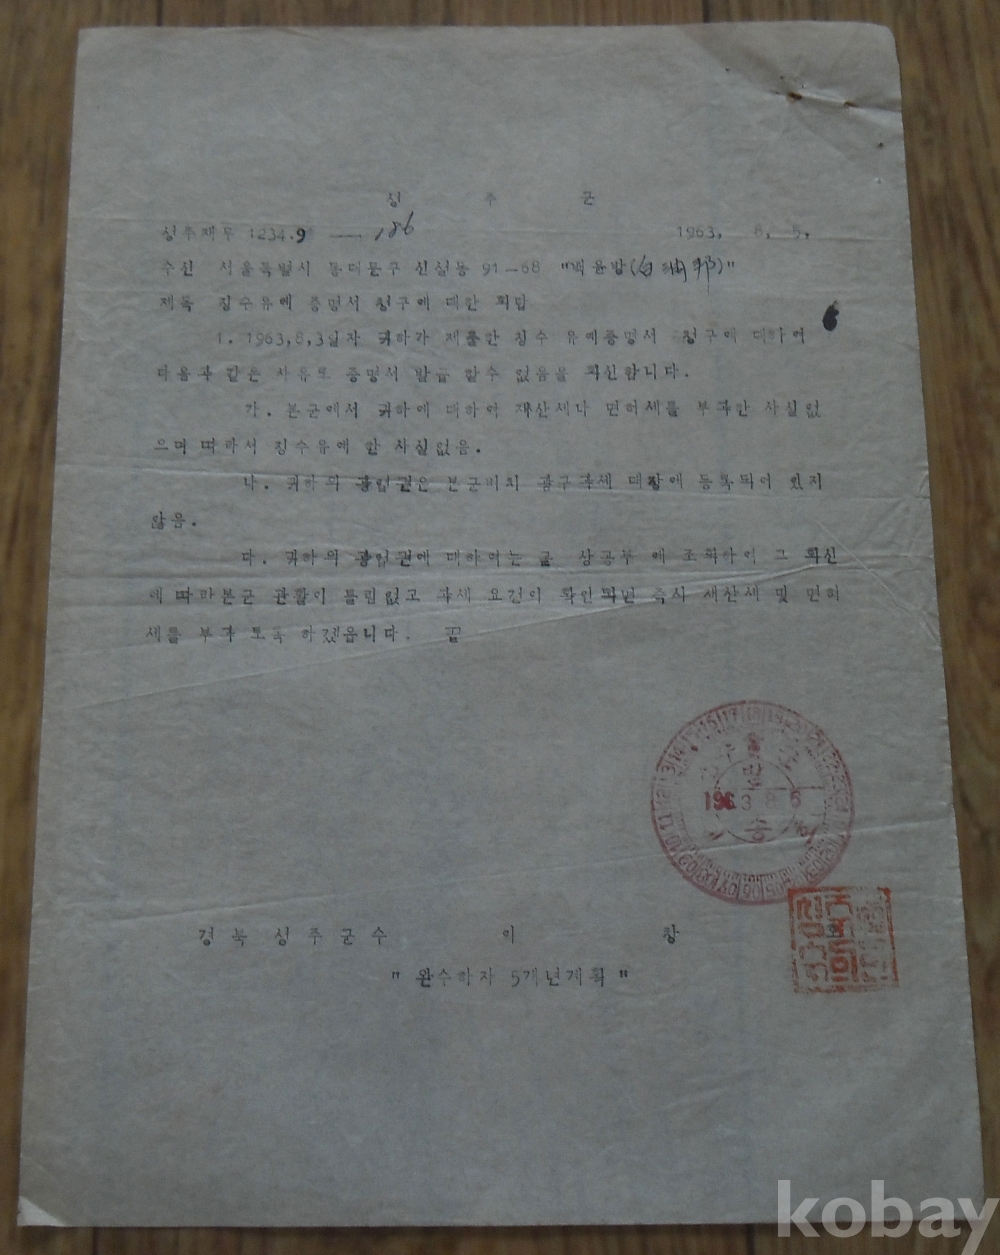 성 주 군
성주재무 1234.9 — 186 1963. 8. 5.
수신 서울특별시 동대문구 신설동 91-68 "백윤방(白 邦)"
제목 징수유예 증명서 청구에 대한 회답
1. 1963,8,3일자 귀하가 제출한 징수 유예증명서 청구에 대하여
다음과 같은 사유로 증명서 발급 할수 없음을 회신합니다.
가. 본군에서 귀하에 대하여 재산세나 면허세를 부과한 사실없
으며 따라서 징수유예 한 사실없음.
나. 귀하의 광업권은 본군비치 광구과세 대장에 등록되어 있지
않음.
다. 귀하의 광업권에 대하여는 곧 상공부 에 조회하여 그 회신
에 따라본군 관할이 틀림없고 과세 요건이 확인되면 즉시 재산세 및 면허
세를 부과 토록 하겠읍니다. 끝
1963 8 6
경북 성주군수 이 창
" 완수하자 5개년계획 "
kobay